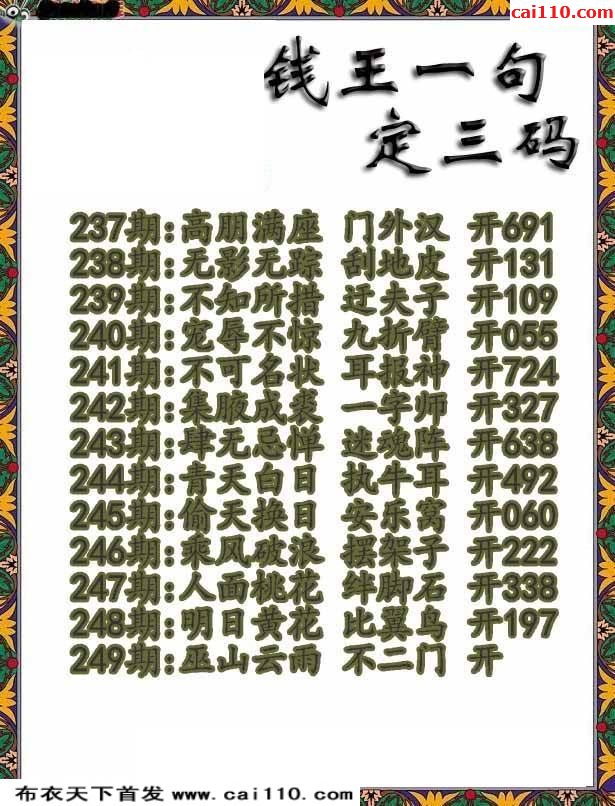 cai110.com
钱王一句
定三码
237期:高朋满座 门外汉 开691
238期:无影无踪 刮地皮 开131
239期:不知所措 迂夫子 开109
240期:宠辱不惊 九折臂 开055
241期:不可名状 耳报神 开724
242期:集腋成裘 一字师 开327
243期:肆无忌惮 迷魂阵 开638
244期:青天白日 执牛耳 开492
245期:偷天换日 安乐窝 开060
246期:乘风破浪 摆架子 开222
247期:人面桃花 绊脚石 开338
248期:明日黄花 比翼鸟 开197
249期:巫山云雨 不二门 开
布衣天下首发 www.cai110.com